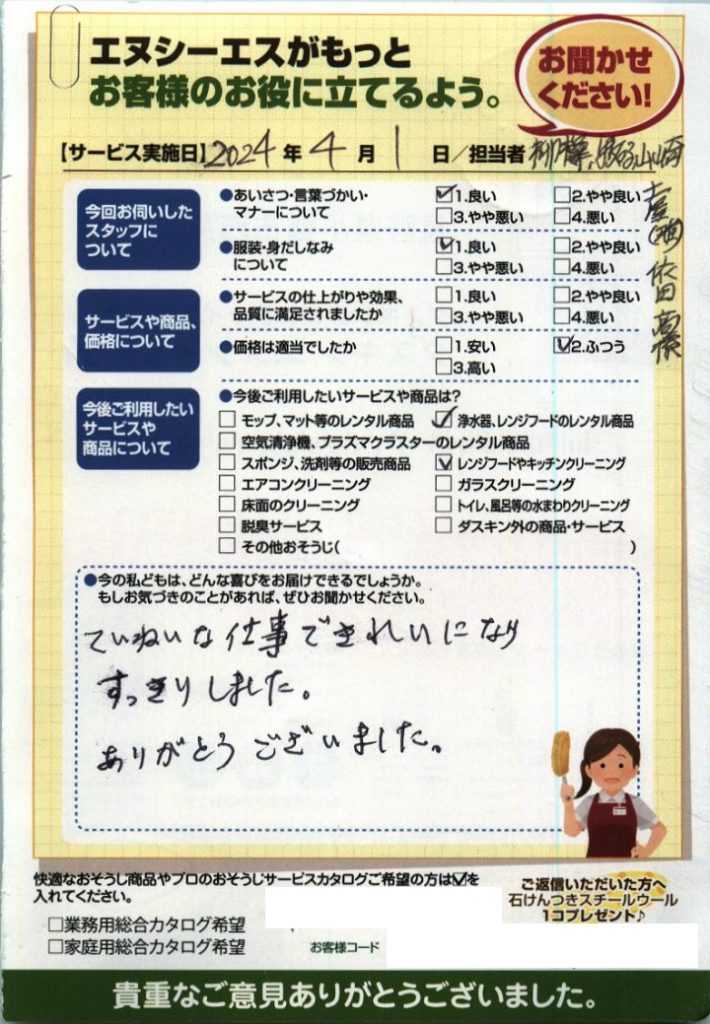 エヌシーエスがもっと
お客様のお役に立てるよう。
お聞かせ
ください!
【サービス実施日】2024年 4月 1日/担当者 山崎
土屋
依田
今回お伺いした
スタッフに
ついて
●あいさつ・言葉づかい・
マナーについて
☑1.良い □2.やや良い
□3.やや悪い □4.悪い
●服装・身だしなみ
について
☑1.良い □2.やや良い
□3.やや悪い □4.悪い
サービスや商品、
価格について
●サービスの仕上がりや効果、
品質に満足されましたか
□1.良い □2.やや良い
□3.やや悪い □4.悪い
●価格は適当でしたか
□1.安い ☑2.ふつう
□3.高い
今後ご利用したい
サービスや
商品について
●今後ご利用したいサービスや商品は?
□ モップ、マット等のレンタル商品 ☑ 浄水器、レンジフードのレンタル商品
□ 空気清浄機、プラズマクラスターのレンタル商品
□ スポンジ、洗剤等の販売商品 ☑ レンジフードやキッチンクリーニング
□ エアコンクリーニング □ ガラスクリーニング
□ 床面のクリーニング □ トイレ、風呂等の水まわりクリーニング
□ 脱臭サービス □ ダスキン外の商品・サービス
□ その他おそうじ( )
●今の私どもは、どんな喜びをお届けできるでしょうか。
もしお気づきのことがあれば、ぜひお聞かせください。
ていねいな仕事できれいになり
すっきりしました。
ありがとうございました。
快適なおそうじ商品やプロのおそうじサービスカタログご希望の方は☑を
入れてください。
□業務用総合カタログ希望
□家庭用総合カタログ希望
お客様コード
ご返信いただいた方へ
石けんつきスチールウール
1コプレゼント♪
貴重なご意見ありがとうございました。